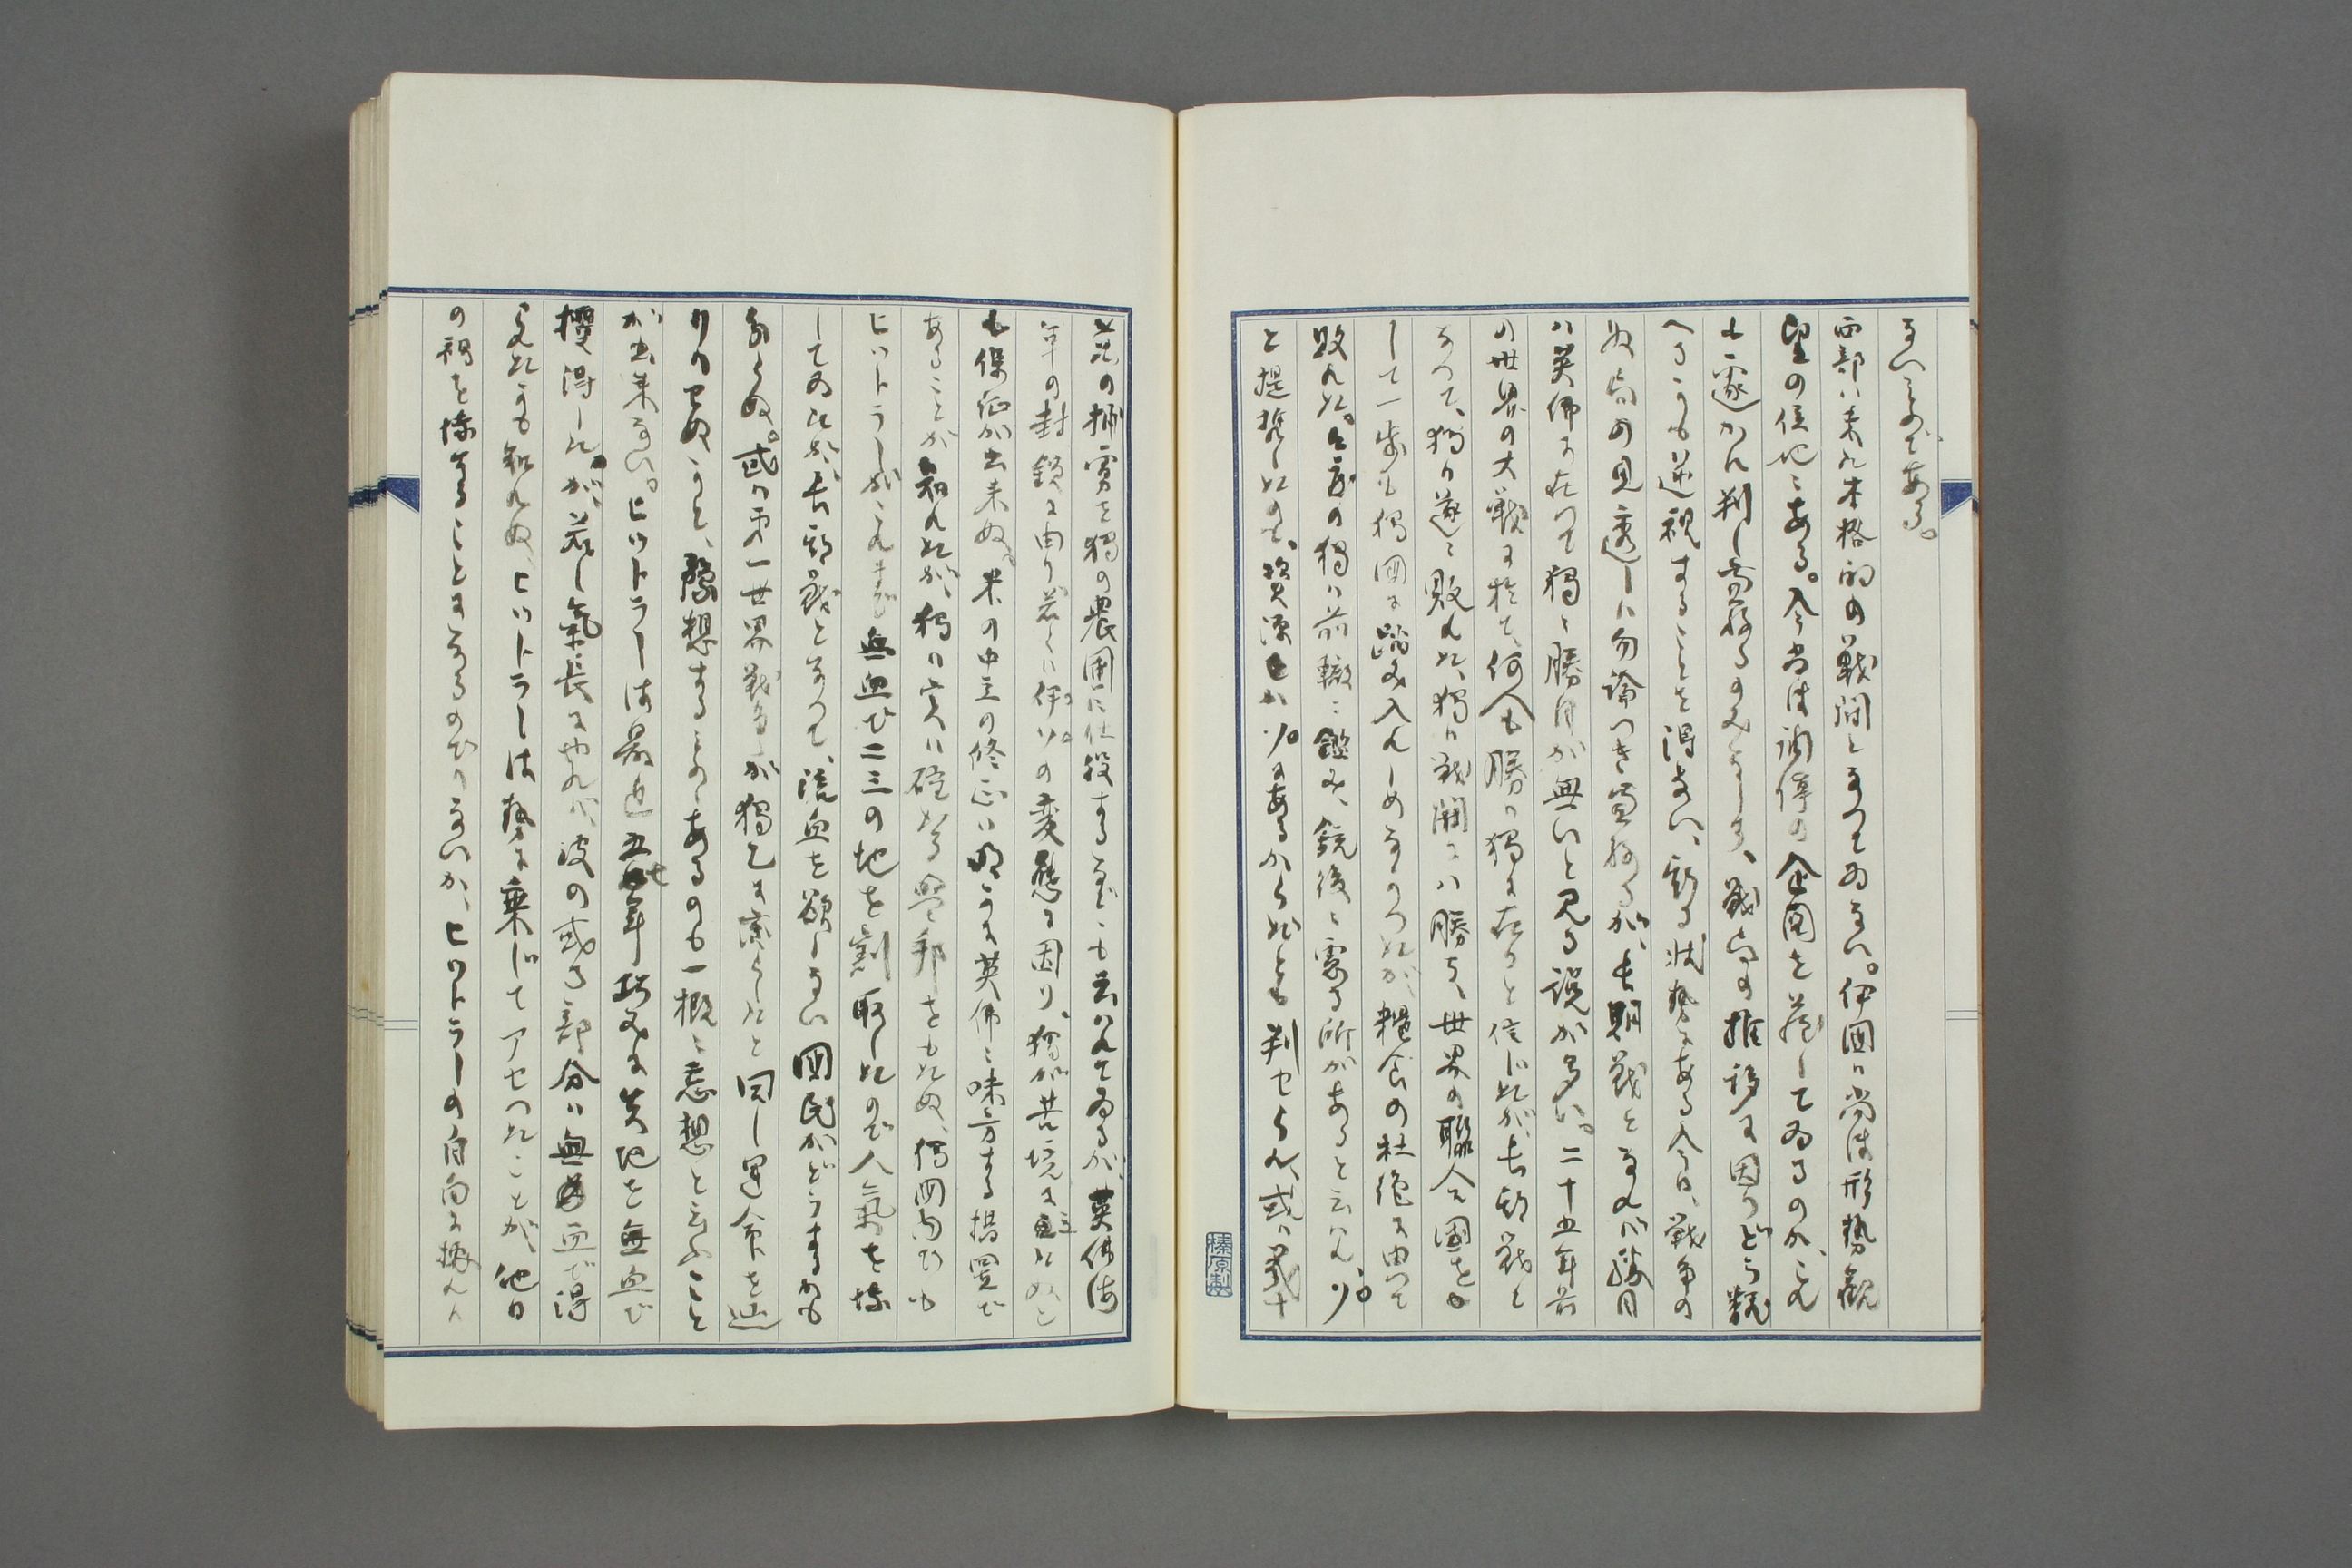 ないものである。
西部は未だ本格的の戦闘となつてゐない。伊国は尚ほ形勢観
望の位地にある。今尚ほ調停の余図を蔵してゐるのか、これ
も遽かに判し兼ねる。戦局の推移に因りどう転
へるかも逆視することを得ない、斯る状勢にある今日、戦争の
結局の見透しは勿論つき兼ねるが、長期戦となれバ勝目
ハ英佛に在つて独に勝目が無いと見る説が多い。二十五年前
の世界の大戦に於て、何人も勝は独に在りと信じたが、長期戦と
なつて、独は遂に敗れた、独は戦闘には勝ち、世界の聯合国を
して一歩も独国に踏み入れしめなかつたが、糧食の杜絶に由つて
敗れた。今度の独は前轍に鑑み、銃後に要る所があると云はれ、ソ
と提携したのも、資源がソにあるからだとも判せられ、或は幾十
万の捕虜を独の農園に仕役するなどゝも云はれてゐるが、英佛海
軍の封鎖に由り若くは伊ソの変態に因り、独が苦境に立たぬと
も保証が出来ぬ。米の中立の修正は明かに英佛に味方する措置で
あることが知れたが、独は実に確たる與邦をもたぬ、独国内ひも
ヒツトラーがこれまで無血で二三の地を割取したので人気を博
してゐたが、長期戦となつて、流血を欲しない国民がどうするかも
知らぬ。或は第一世界戦争が独乙に齎らしたと同じ運命を辿
りはせぬかと、豫想するものあるのも一概に忘想と云ふこと
が出来ない。ヒツトラーは最近五年巧みに失地を無血で
攫得した。が若し気長にやれバ、彼の或る部分は無血で得
られたかも知れぬ、ヒツトラーは勢に乗じてアセつたことが、他日
の禍を醸すことになるのではないか、ヒツトラーの自向に
榛原製